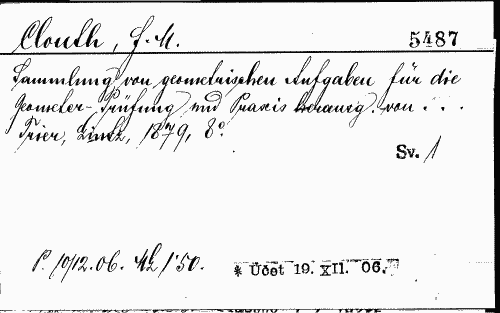 Clouth, F. M. 5487
Sammlung von geometrischen Aufgaben für die
Geometer-Prüfung und Praxis herausg. von . . .
Trier, Lintz, 1879, 8°.
Sv. 1
P. 10/12.06. Mk 1'50.
* Účet 19. XII. 06.